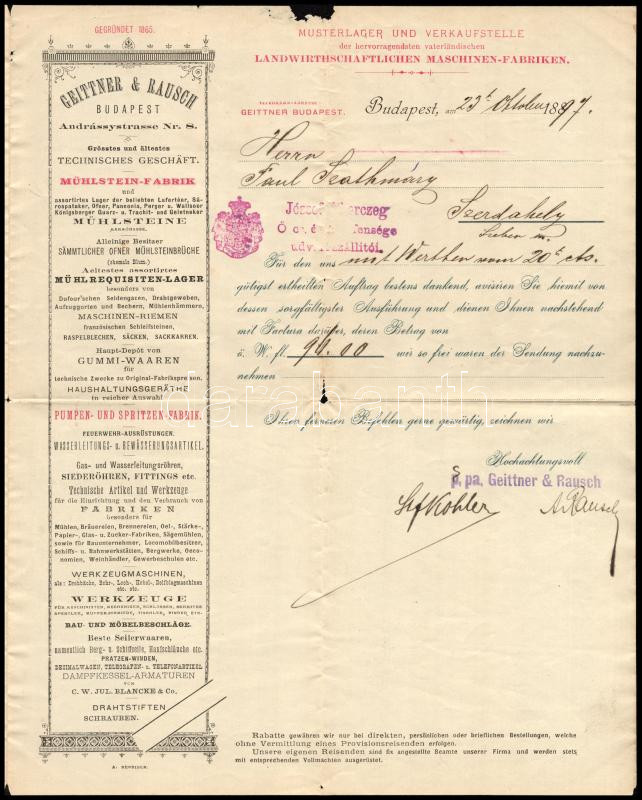 GEGRÜNDET 1865.
GEITTNER & RAUSCH
BUDAPEST
Andrássystrasse Nr. 8.
Grösstes und ältestes
TECHNISCHES GESCHÄFT.
MÜHLSTEIN-FABRIK
und
assortirtes Lager der beliebten Lafertéer, Sá-
rospataker, Ofner, Pannonia, Perger u. Wallseer
Königsberger Quarz- u. Trachit- und Gelsteaker
MÜHLSTEINE
Alleinige Besitzer
SÄMMTLICHER OFNER MÜHLSTEINBRÜCHE
(ehemals Blum.)
Aeltestes assortirtes
MÜHLREQUISITEN-LAGER
besonders von
Dufour'schen Seidengazen, Drahtgeweben,
Aufzuggurten und Bechern, Mühlenhämmern,
MASCHINEN-RIEMEN
französischen Schleifsteinen,
RASPELBLECHEN, SÄCKEN, SACKKARREN.
Haupt-Depôt von
GUMMI-WAAREN
für
technische Zwecke zu Original-Fabrikspreisen.
HAUSHALTUNGSGERÄTHE
in reicher Auswahl
PUMPEN- UND SPRITZEN-FABRIK.
FEUERWEHR-AUSRÜSTUNGEN.
WASSERLEITUNGS- u. BEWÄSSERUNGSARTIKEL.
Gas- und Wasserleitungsröhren,
SIEDERÖHREN, FITTINGS etc.
Technische Artikel und Werkzeuge
für die Einrichtung und den Verbrauch von
FABRIKEN
besonders für
Mühlen, Bräuereien, Brennereien, Oel-, Stärke-,
Papier-, Glas- u. Zucker-Fabriken, Sägemühlen,
sowie für Bauunternehmer, Locomobilbesitzer,
Schiffs- u. Bahnwerkstätten, Bergwerke, Oeco-
nomien, Weinhändler, Gewerbeschulen etc.
WERKZEUGMASCHINEN,
als: Drehbänke, Bohr-, Loch-, Hobel-, Stossmaschinen
etc. etc.
WERKZEUGE
FÜR MASCHINISTEN, MECHANIKER, SCHLOSSER, SCHMIEDE
SPENGLER, KUPFERSCHMIEDE, TISCHLER, BINDER ETC.
BAU- UND MÖBELBESCHLÄGE.
Beste Seilerwaaren,
namentlich Berg- u. Schiffseile, Hanfschläuche etc.
PRATZEN-WINDEN,
DECIMALWAGEN, TELEGRAFEN- u. TELEFONARTIKEL
DAMPFKESSEL-ARMATUREN
VON
C. W. JUL. BLANCKE & Co.
DRAHTSTIFTEN
SCHRAUBEN.
MUSTERLAGER UND VERKAUFSTELLE
der hervorragendsten vaterländischen
LANDWIRTHSCHAFTLICHEN MASCHINEN-FABRIKEN.
TELEGRAMM-ADRESSE
GEITTNER BUDAPEST.
Budapest, am 23t Oktober 1897.
Herrn
Paul Szathmáry
Szerdahely
József Herczeg
Ő cs. és k. fensége
udv. szállítói.
Für den uns mit Werthen vom 20t cts.
gütigst ertheilten Auftrag bestens dankend, avisiren Sie hiemit von
dessen sorgfältigster Ausführung und dienen Ihnen nachstehend
mit Factura darüber, deren Betrag von
ö. W. fl. 90.00 wir so frei waren der Sendung nachzu-
nehmen
Ihrer ferneren Befehlen gerne gewärtig, zeichnen wir
Hochachtungsvoll
p. pa. Geittner & Rausch
Kohler A. Rausch
Rabatte gewähren wir nur bei direkten, persönlichen oder brieflichen Bestellungen, welche
ohne Vermittlung eines Provisionsreisenden erfolgen.
Unsere eigenen Reisenden sind fix angestellte Beamte unserer Firma und werden stets
mit entsprechenden Vollmachten ausgerüstet.
darabanth